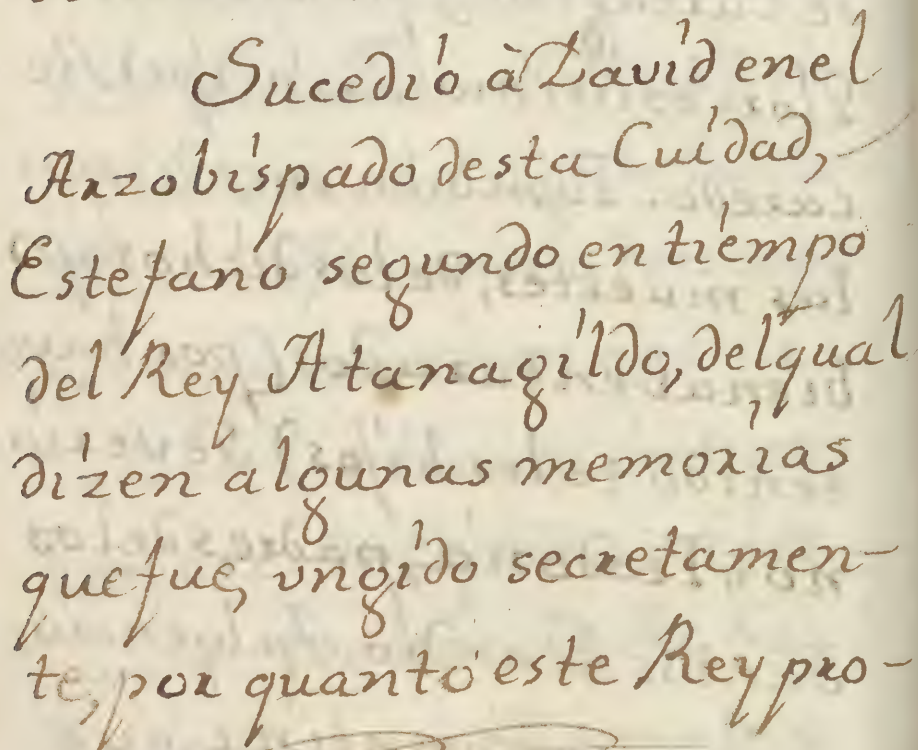 Sucedió à David en el
Arzobispado desta Cuidad,
Estefano segundo en tiempo
del Rey Atanagildo, del qual
dizen algunas memorias
que fue, vngido secretamen-
te, por quanto este Rey pro-